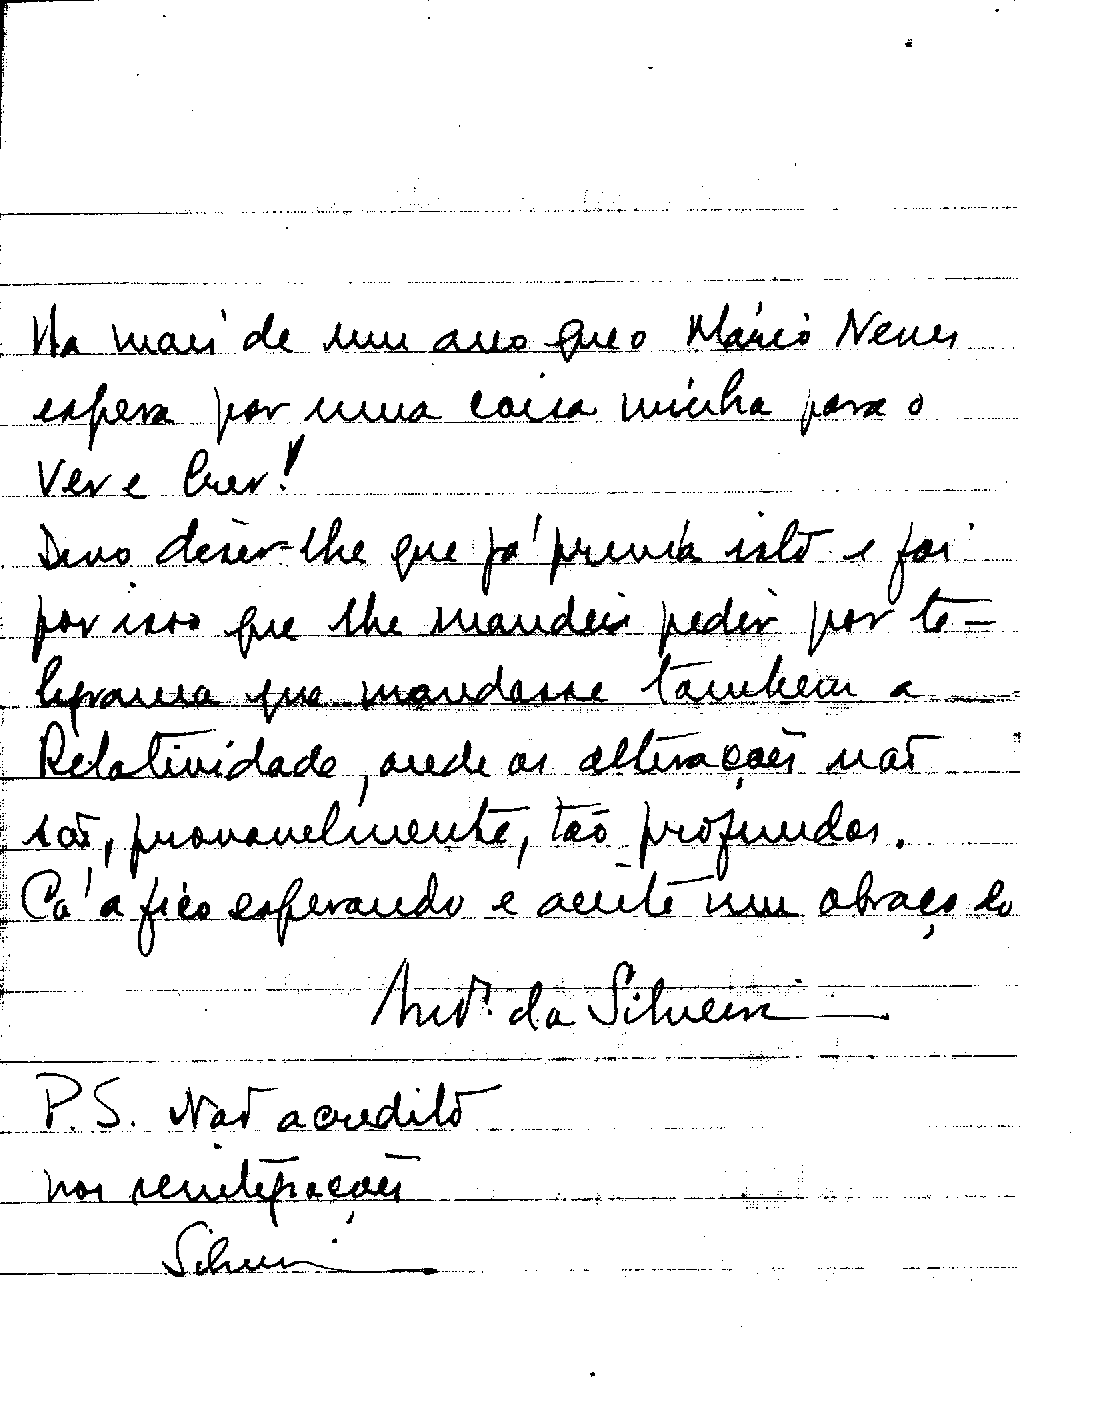 Ha mais de um ano que o Mário Neves
espera por uma coisa minha para o
Ver e Crer!
Devo dizer-lhe que já previa isto e foi
por isso que lhe mandei pedir por te-
legrama que mandasse tambem a
Relatividade, onde as alterações não
são, provavelmente, tão profundas.
Cá a fico esperando e aceite um abraço do
da Silveira
P.S. Não acredito
nas reintegrações
Silveira